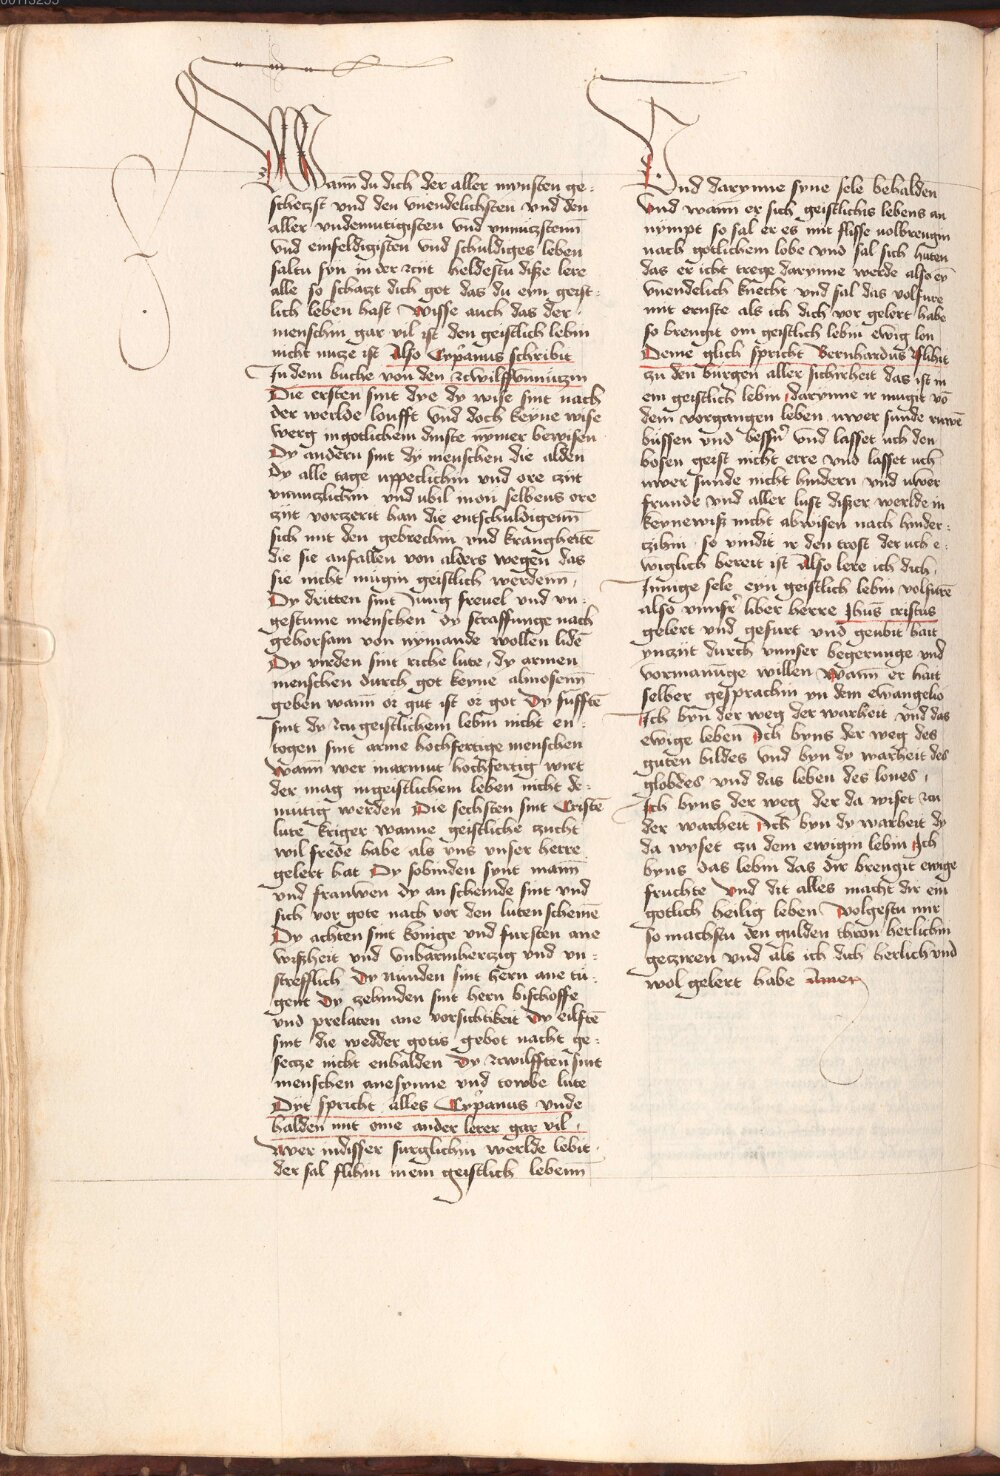 Wann̄ du dich der aller mynsten ge-
schetzst vnd den vnendelichsten vnd den
aller vndemutigisten vnd vnnutzstenn̄
vnd einfeldigisten vnd schuldiges leben
saltu syn in der zciit heldestu diße lere
alle so schatzt dich got das du eyn geist-
lich leben hast Wisse auch das der
menschin gar vil ist den geistlich lebin
nicht nutze ist Also Cyp̄anus schribit
In dem buche von den zcwilff vnnutzin
Die ersten sint dye dy wise sint nach
der werlde loufft vnd doch keyne wise
werg in gotlichem dinste nymer bewisen
Dy andern sint dy menschen die alden
dy alle tage uppeclichin vnd ore cziit
vnnutzlichin vnd ubil in on selbens ore
cziit vorczerit han die entschuldigenn̄
sich mit den gebrechin vnd krangheitē
die sie anfallen von alders wegen das
sie nicht mugin geistlich werdenn
Dy dritten sint Jung frevel vnd vn-
gestume menschen dy straffunge nach
gehorsam von nymande wollen lidē
Dy virden sint riche lute dy armen
menschen durch got keyne almosenn̄
geben wann̄ or gut ist or got Dy funfftē
sint dy zcu geistlichem lebin nicht en-
togen sint arme hochfertige menschen
Wann̄ wer in armut hochfertig wirt
der mag in geistlichem leben nicht de-
mutig werden Die sechsten sint Cristē
lute kriger wanne geistliche zucht
wil frede habe als vns vnser herre
gelert hat Dy sobinden synt mann̄
vnd frauwen dy an schemde sint vnd
sich vor gote nach vor den luten schemē
Dy achten sint konige vnd fursten ane
wißheit vnd vnbarmhertzig vnd vn-
strefflich Dy nunden sint hern ane tu-
gent Dy zehinden sint hern bischoffe
vnd prelaten ane vorsichtikeit Dy eilftē
sint die wedder gotis gebot nacht ge-
setze nicht enhalden Dy zcwilfften sint
menschen ane synne vnd towbe lute
Dyt spricht alles Cyp̄anus vnde
halden mit ome ander lerer gar vil
Wer in disser surglichin werlde lebit
der sal flihin in ein geistlich lebenn̄
Vnd darynne syne sele behalden
Vnd wann̄ er sich geistlichis lebens an
nympt so sal er es mit flisse volbrengin
nach gotlichem lobe vnd sal sich huten
das er icht trege darynne werde also eȳ
vnendelich knecht vnd sal das volfure
mit ernste als ich dich vor gelert habe
so brengit om geistlich lebin ewig lon
Deme glich spricht Bernhardus flihit
zu den burgen aller sichirheit das ist in
ein geistlich lebin darynne ir mugit vō
dem vorgangen leben uwer sunde ruwē
bussen vnd bessir̄ vnd lasset uch den
bosen geist nicht erre vnd lasset uch
uwer sunde nicht hindern vnd uwer
frunde vnd aller lust dißer werlde in
keynewiß nicht abwisen nach hinder-
czihin so vindit ir den trost der uch e-
wiglich bereit ist Also lere ich dich
Innige sele eyn geistlich lebin volfurē
also vnnsr̄ liber herre Jhūs cristus
gelert vnd gefurt vnd geubit hait
ynczit durch vnnser begerunge vnd
vormanūge willen Wann̄ er hait
selber gesprachin yn dem ewangelio
Ich byn der weg der warheit vnd das
ewige leben Ich byns der weg des
guten bildes vnd byn dy warheit des
globdes vnd das leben des lones
Ich byns der weg der da wiset zcu
der warheit Ich byn dy warheit dy
da wyset zu dem ewigin lebin Ich
byns das lebin das dir brengit ewige
fruchte Vnd dit alles macht dir ein
gotlich heilig leben Volgestu mir
so machstu den gulden thron herlichin
getziren vnd als ich dich herlich vnd
wol gelert habe Amen